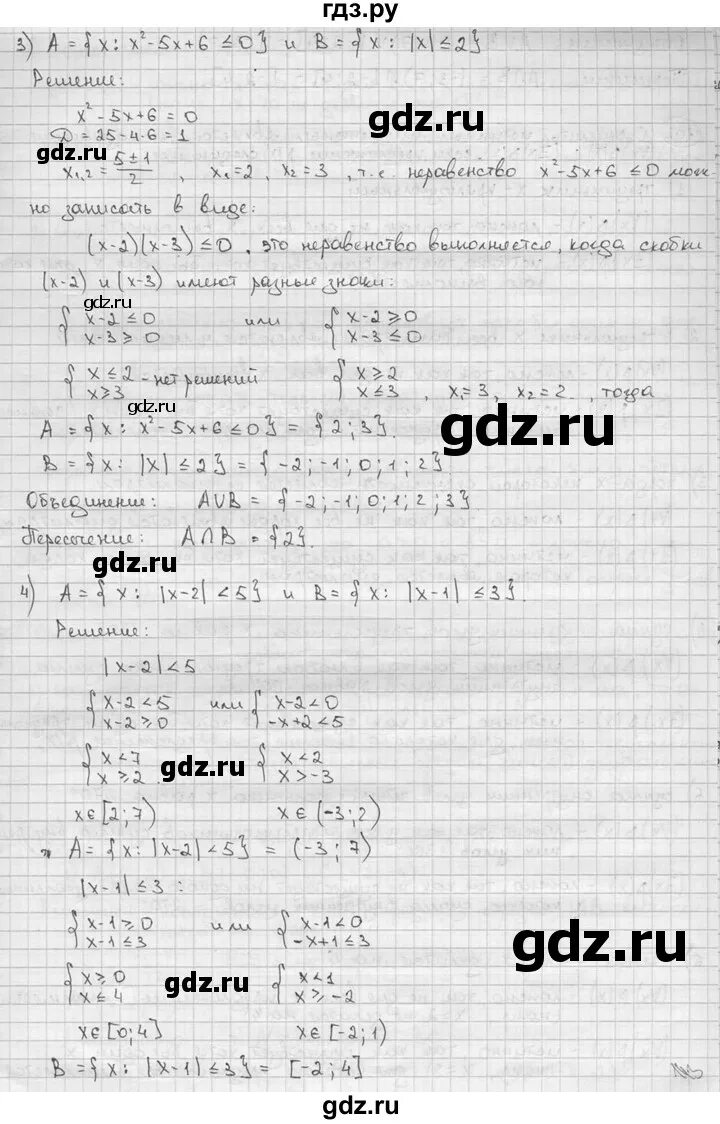 гдз.ру
3) A = { x : x² - 5x + 6 ≤ 0 } и B = { x : |x| ≤ 2 }
Решение:
x² - 5x + 6 = 0
gdz.ru
D = 25 - 4·6 = 1
gdz.ru
x₁,₂ = (5 ± 1)/2 , x₁ = 2 , x₂ = 3 , т.е. неравенство x² - 5x + 6 ≤ 0 мож-
но записать в виде:
(x-2)(x-3) ≤ 0 , это неравенство выполняется, когда скобки
(x-2) и (x-3) имеют разные знаки:
gdz.ru
gdz.ru
{ x-2 ≤ 0 или { x-2 ≥ 0
{ x-3 ≥ 0 { x-3 ≤ 0
{ x ≤ 2 - нет решений { x ≥ 2
{ x ≥ 3 { x ≤ 3 , x₁ = 3, x₂ = 2 , тогда
gdz.ru
gdz.ru
A = { x : x² - 5x + 6 ≤ 0 } = { 2 ; 3 }.
B = { x : |x| ≤ 2 } = { -2 ; -1 ; 0 ; 1 ; 2 }
Объединение: A∪B = { -2 ; -1 ; 0 ; 1 ; 2 ; 3 }
Пересечение: A∩B = { 2 }.
gdz.ru
4) A = { x : |x-2| < 5 } и B = { x : |x-1| ≤ 3 }.
Решение:
|x-2| < 5
{ x-2 < 5 или { x-2 < 0
{ x-2 ≥ 0 { -x+2 < 5
{ x < 7 { x < 2
{ x ≥ 2 { x > -3
gdz.ru
gdz.ru
x ∈ [2; 7) x ∈ (-3; 2)
A = { x : |x-2| < 5 } = (-3 ; 7)
|x-1| ≤ 3 :
{ x-1 ≥ 0 или { x-1 < 0
{ x-1 ≤ 3 { -x+1 ≤ 3
gdz.ru
{ x ≥ 0 { x < 1
{ x ≤ 4 { x ≥ -2
gdz.ru
x ∈ [0; 4] x ∈ [-2; 1)
B = { x : |x-1| ≤ 3 } = [-2 ; 4]
gdz.ru
gdz.ru